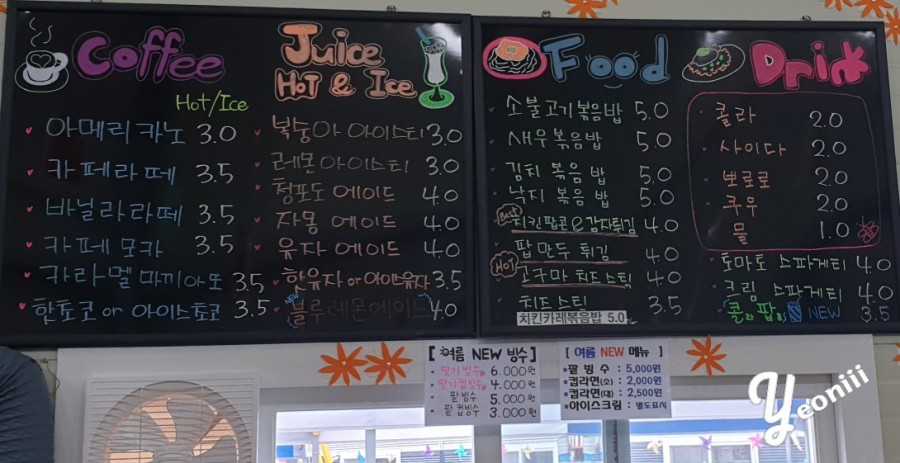 Coffee
Hot/Ice
아메리카노 3.0
카페라떼 3.5
바닐라라떼 3.5
카페모카 3.5
카라멜마끼아또 3.5
핫쵸코 or 아이스쵸코 3.5
Juice
HOT & ICE
복숭아 아이스티 3.0
레몬아이스티 3.0
청포도 에이드 4.0
자몽 에이드 4.0
유자 에이드 4.0
핫유자 or 아이스유자 3.5
블루레몬에이드 4.0
Food
소불고기볶음밥 5.0
새우볶음밥 5.0
김치 볶음밥 5.0
낙지 볶음밥 5.0
Best
치킨팝콘&감자튀김 4.0
팝만두 튀김 4.0
HOT
고구마 치즈스틱 4.0
치즈스틱 3.5
치킨카레볶음밥 5.0
Drink
콜라 2.0
사이다 2.0
뽀로로 2.0
쿠우 2.0
물 1.0
토마토 스파게티 4.0
크림 스파게티 4.0
콜라팝 NEW 3.5
[여름 NEW 빙수]
딸기빙수 6.000원
딸기컵빙수 4.000원
팥빙수 5.000원
팥컵빙수 3.000원
[여름 NEW 메뉴]
*팥 빙 수 : 5,000원
*컵라면(소) : 2,000원
*컵라면(대) : 2,500원
*아이스크림 : 별도표시
Yeoniii